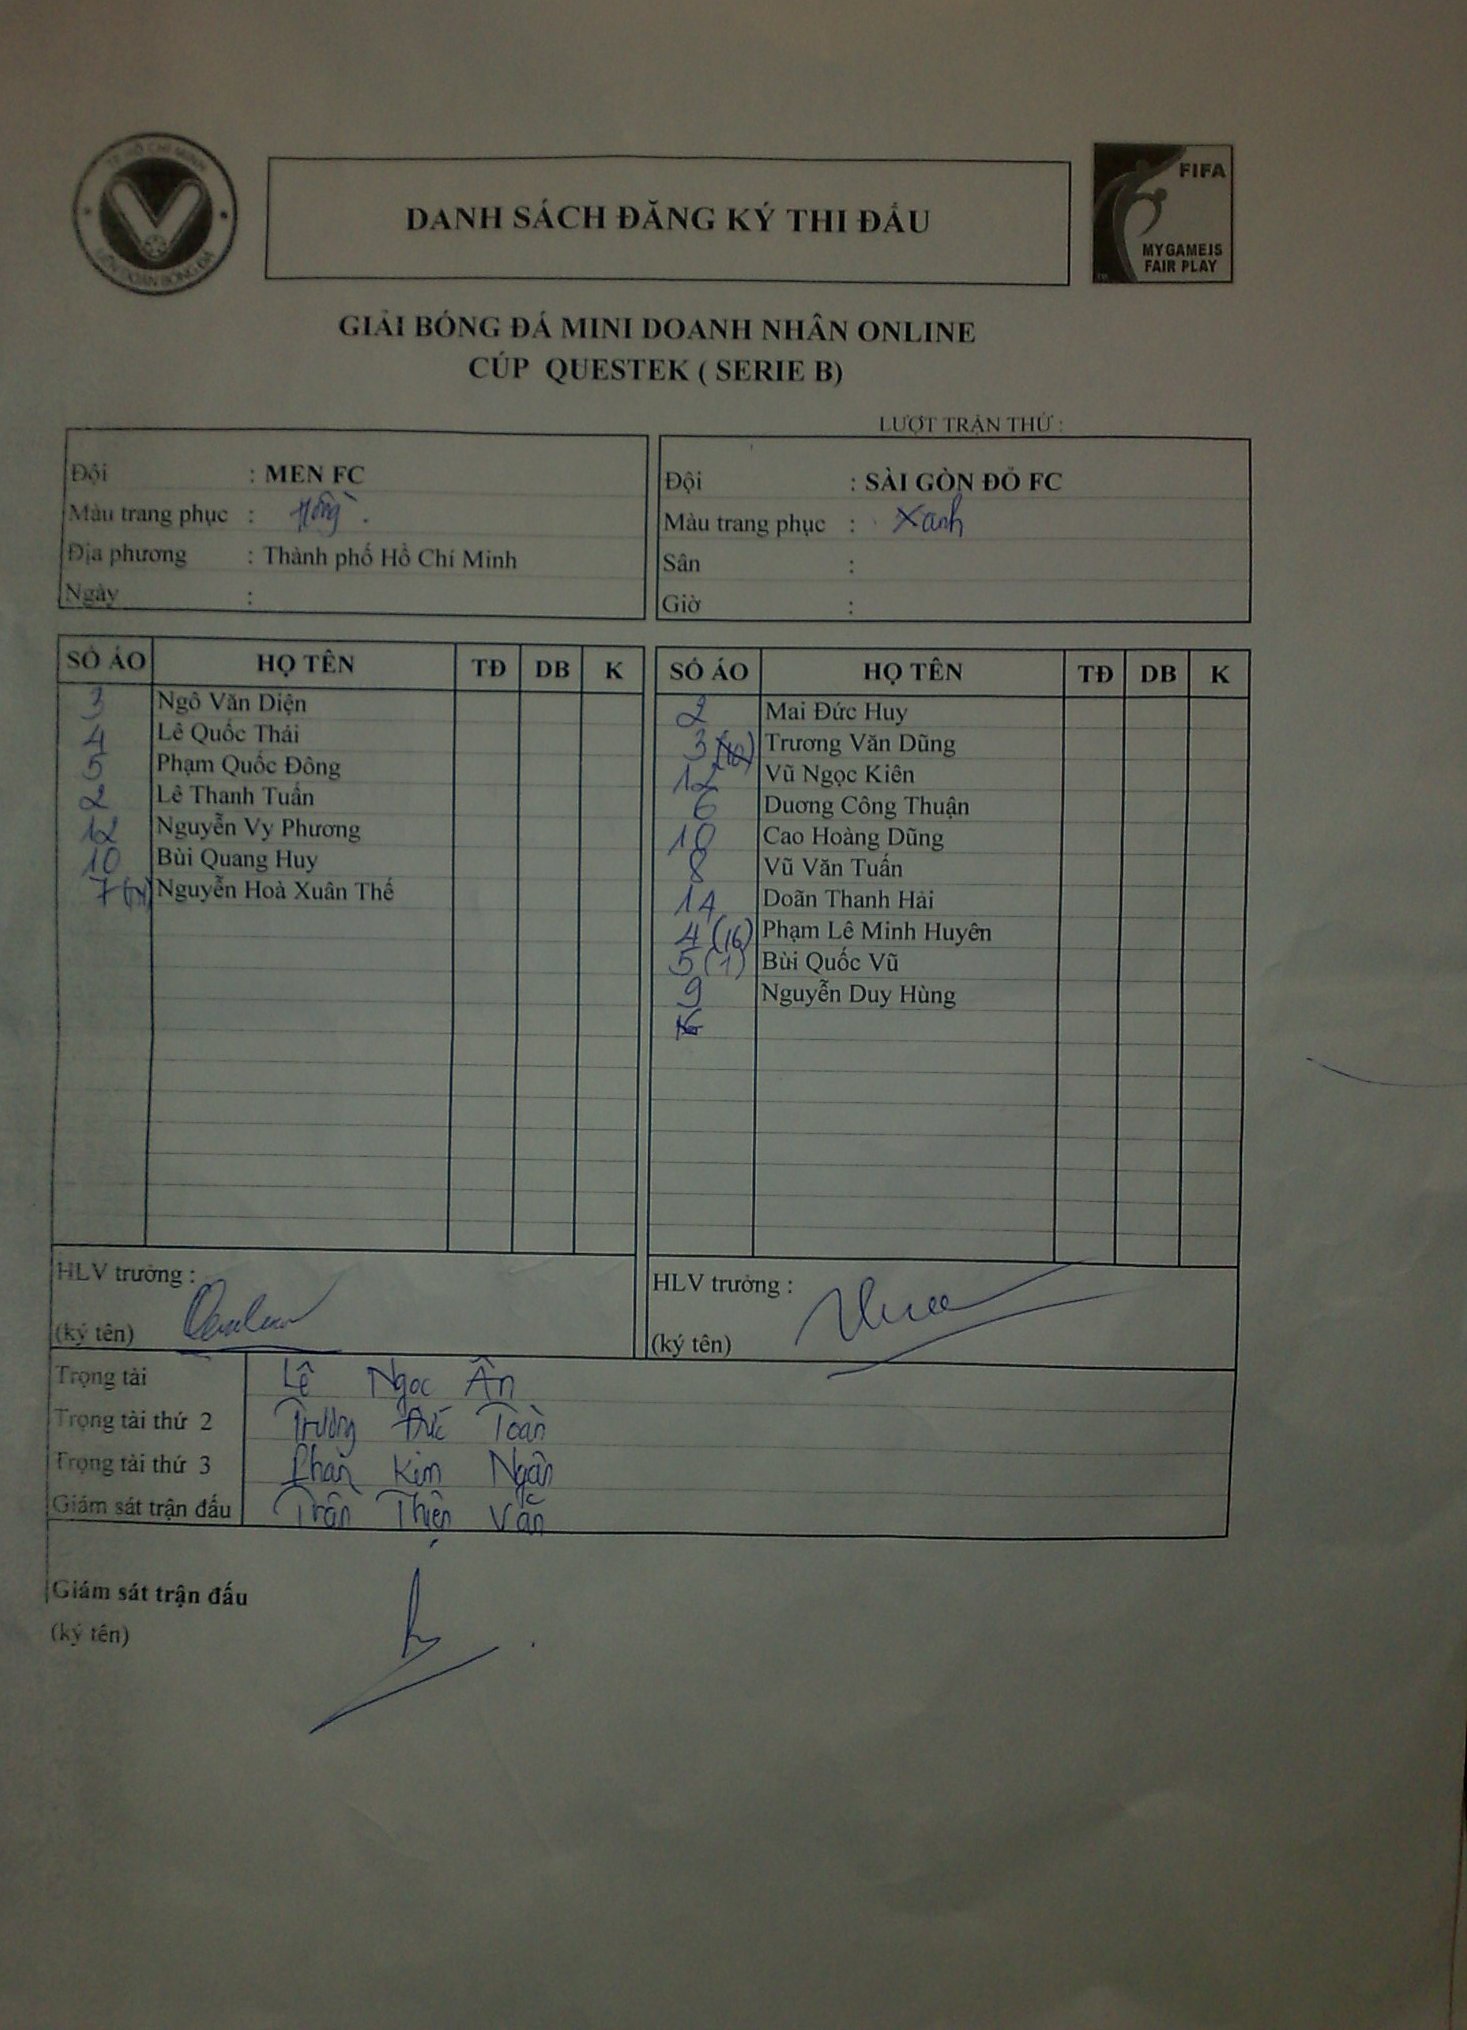 TP HỒ CHÍ MINH
LIÊN ĐOÀN BÓNG ĐÁ
DANH SÁCH ĐĂNG KÝ THI ĐẤU
FIFA
MY GAME IS
FAIR PLAY
GIẢI BÓNG ĐÁ MINI DOANH NHÂN ONLINE
CÚP QUESTEK ( SERIE B)
LƯỢT TRẬN THỨ :
Đội : MEN FC
Màu trang phục : Hồng
Địa phương : Thành phố Hồ Chí Minh
Ngày :
Đội : SÀI GÒN ĐỎ FC
Màu trang phục : Xanh
Sân :
Giờ :
SỐ ÁO HỌ TÊN TĐ DB K
3 Ngô Văn Diện
4 Lê Quốc Thái
5 Phạm Quốc Đông
2 Lê Thanh Tuấn
12 Nguyễn Vy Phương
10 Bùi Quang Huy
7 Nguyễn Hoà Xuân Thế
SỐ ÁO HỌ TÊN TĐ DB K
2 Mai Đức Huy
3 Trương Văn Dũng
12 Vũ Ngọc Kiên
6 Duơng Công Thuận
10 Cao Hoàng Dũng
8 Vũ Văn Tuấn
14 Doãn Thanh Hải
4 (16) Phạm Lê Minh Huyên
5 (1) Bùi Quốc Vũ
9 Nguyễn Duy Hùng
HLV trưởng :
(ký tên)
HLV trưởng :
(ký tên)
Trọng tài Lê Ngọc Ân
Trọng tài thứ 2 Trương Đức Toàn
Trọng tài thứ 3 Phan Kim Ngân
Giám sát trận đấu Trần Thiện Văn
Giám sát trận đấu
(ký tên)